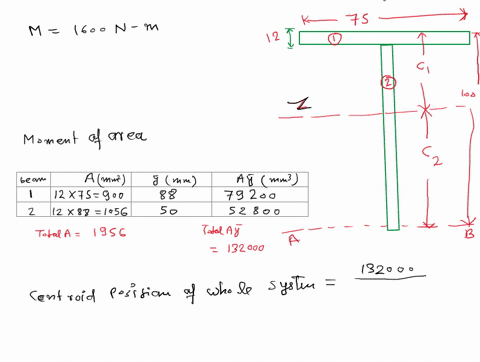 M = 1600 N-m
75
12
①
②
C1
100
C2
Moment of area
beam A(mm²) ȳ (mm) Aȳ (mm³)
1 12×75=900 88 79200
2 12×88=1056 50 52800
Total A = 1956
Total Aȳ
= 132000
A
B
Centroid position of whole system = 132000